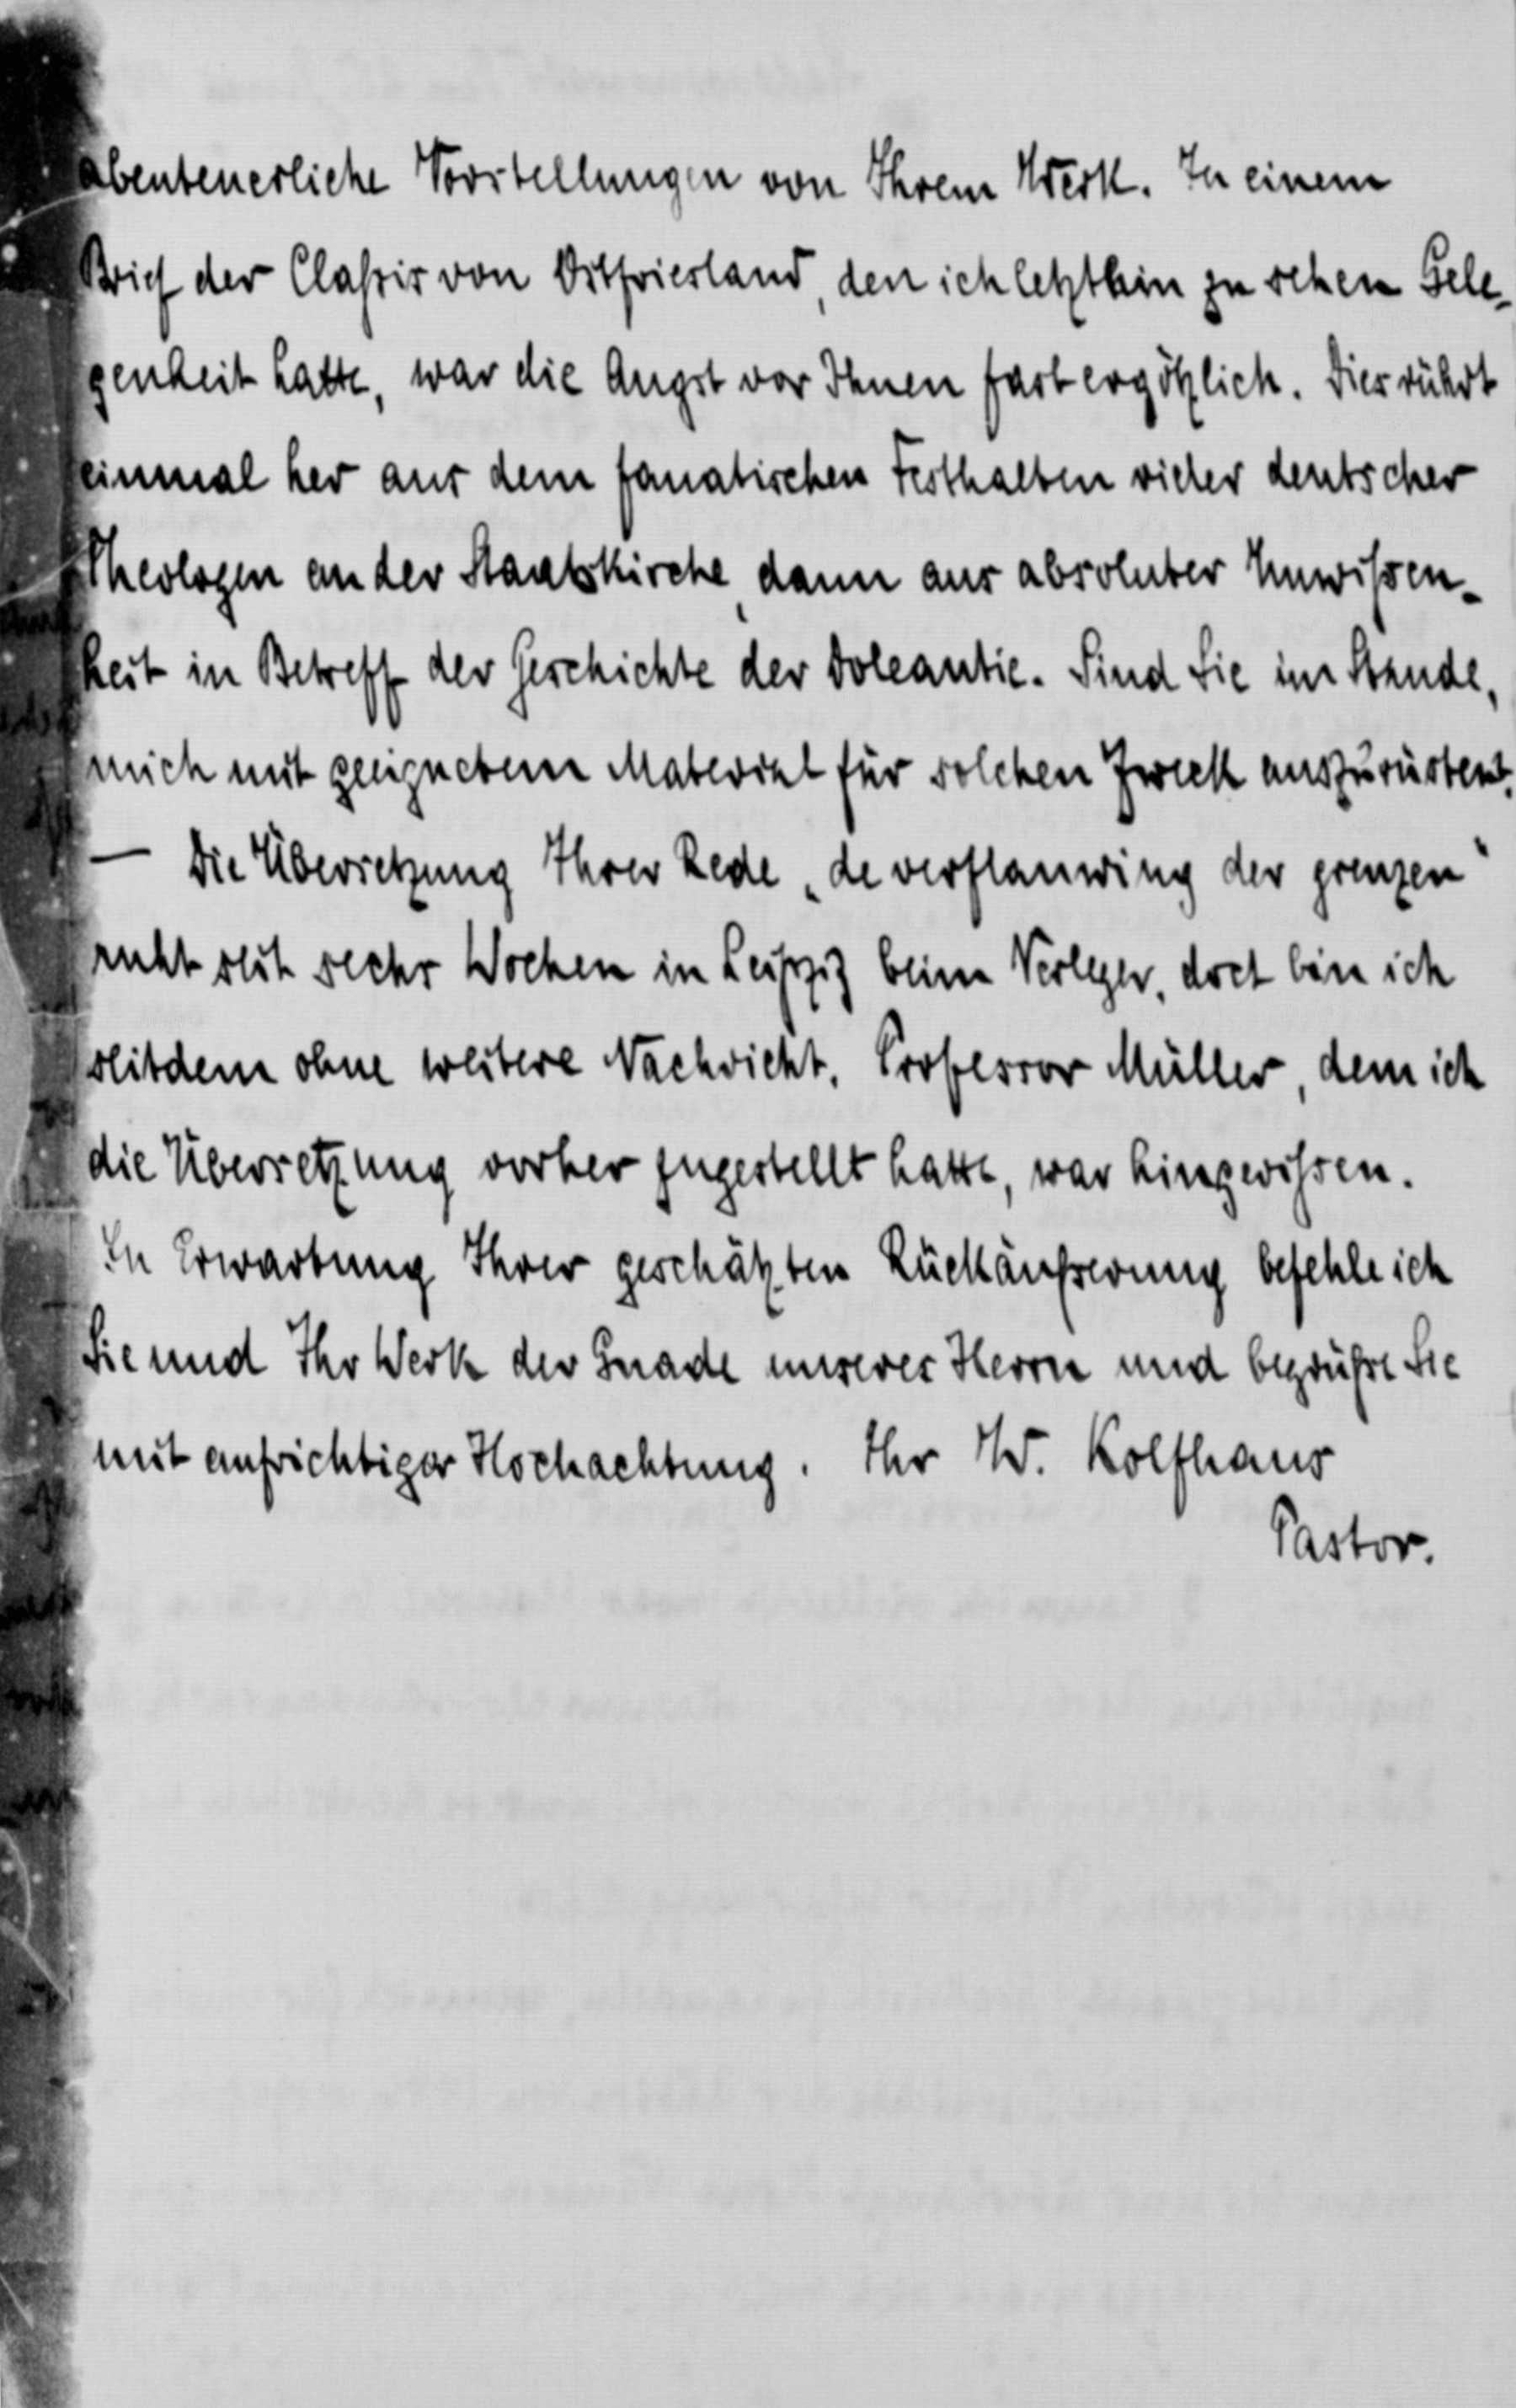 abenteuerliche Vorstellungen von Ihrem Werk. In einem
Brief der Claßis von Ostfriesland, den ich letzthin zu sehen Gele-
genheit hatte, war die Angst vor Ihnen fast ergötzlich. Dies rührt
einmal her aus dem fanatischen Festhalten vieler deutscher
Theologen an der Staatskirche, dann aus absoluter Unwißen-
heit in Betreff der Geschichte der Doleantie. Sind Sie im Stande,
mich mit geeignetem Material für solchen Zweck auszurüsten?
— Die Übersetzung Ihrer Rede „de verflauwing der grenzen"
ruht seit sechs Wochen in Leipzig beim Verleger, doch bin ich
seitdem ohne weitere Nachricht. Professor Müller, dem ich
die Übersetzung vorher zugestellt hatte, war hingerißen.
In Erwartung Ihrer geschätzten Rückäußerung befehle ich
Sie und Ihr Werk der Gnade unseres Herrn und begrüße Sie
mit aufrichtiger Hochachtung. Ihr W. Kolfhaus
Pastor.